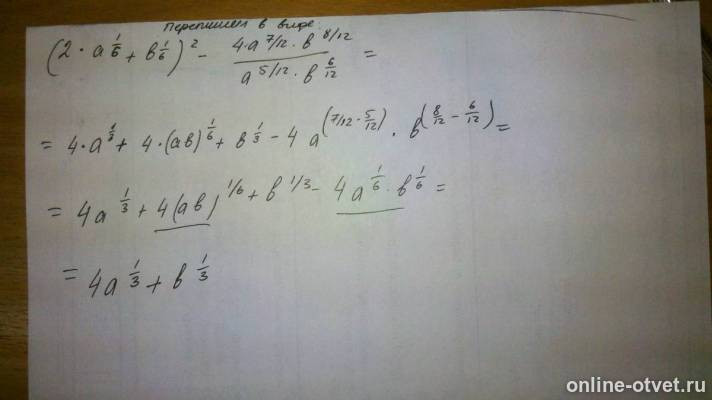 Перепишем в виде:
(2·a^{1/6} + b^{1/6})^2 - \frac{4·a^{7/12}·b^{8/12}}{a^{5/12}·b^{6/12}} =
= 4·a^{1/3} + 4·(ab)^{1/6} + b^{1/3} - 4 a^{(7/12 - 5/12)} · b^{(8/12 - 6/12)} =
= 4a^{1/3} + 4(ab)^{1/6} + b^{1/3} - 4a^{1/6}·b^{1/6} =
= 4a^{1/3} + b^{1/3}
online-otvet.ru